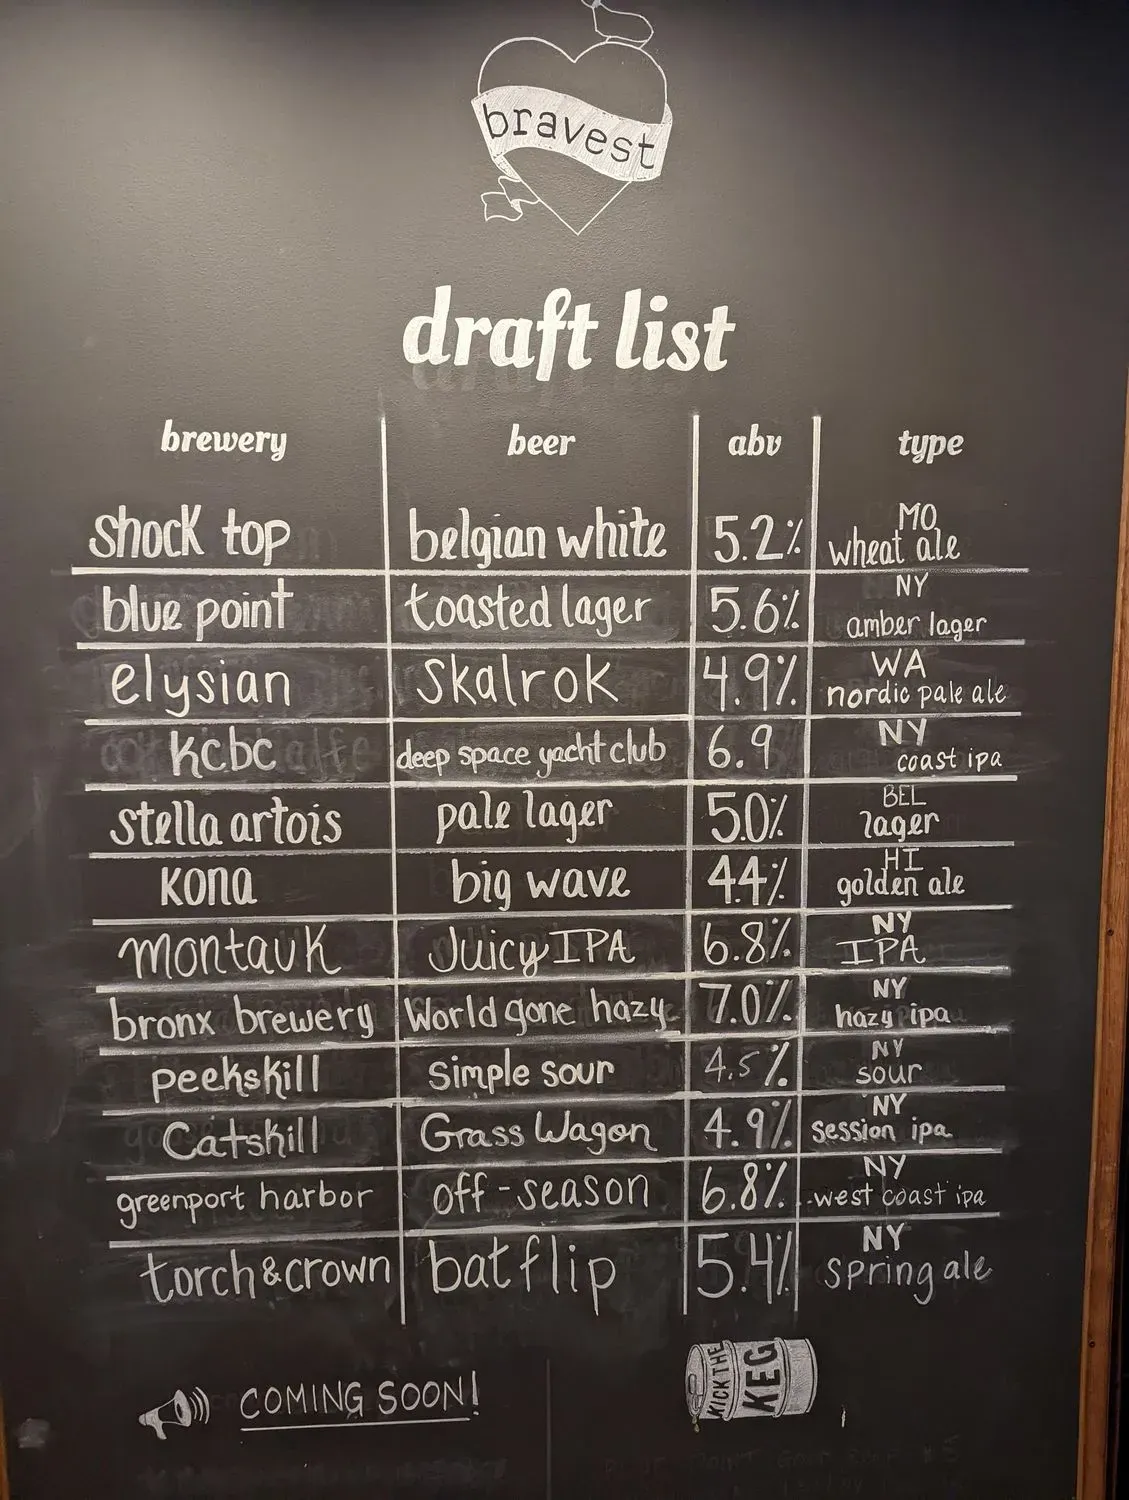 bravest
draft list
brewery beer abv type
shock top belgian white 5.2% MO wheat ale
blue point toasted lager 5.6% NY amber lager
elysian skalrok 4.9% WA nordic pale ale
kcbc deep space yacht club 6.9 NY coast ipa
stella artois pale lager 5.0% BEL lager
kona big wave 4.4% HI golden ale
montauk Juicy IPA 6.8% NY IPA
bronx brewery World gone hazy 7.0% NY hazy ipa
peekskill simple sour 4.5% NY sour
Catskill Grass Wagon 4.9% NY session ipa
greenport harbor off-season 6.8% NY west coast ipa
torch&crown bat flip 5.4% NY spring ale
COMING SOON!
KICK THE
KEG